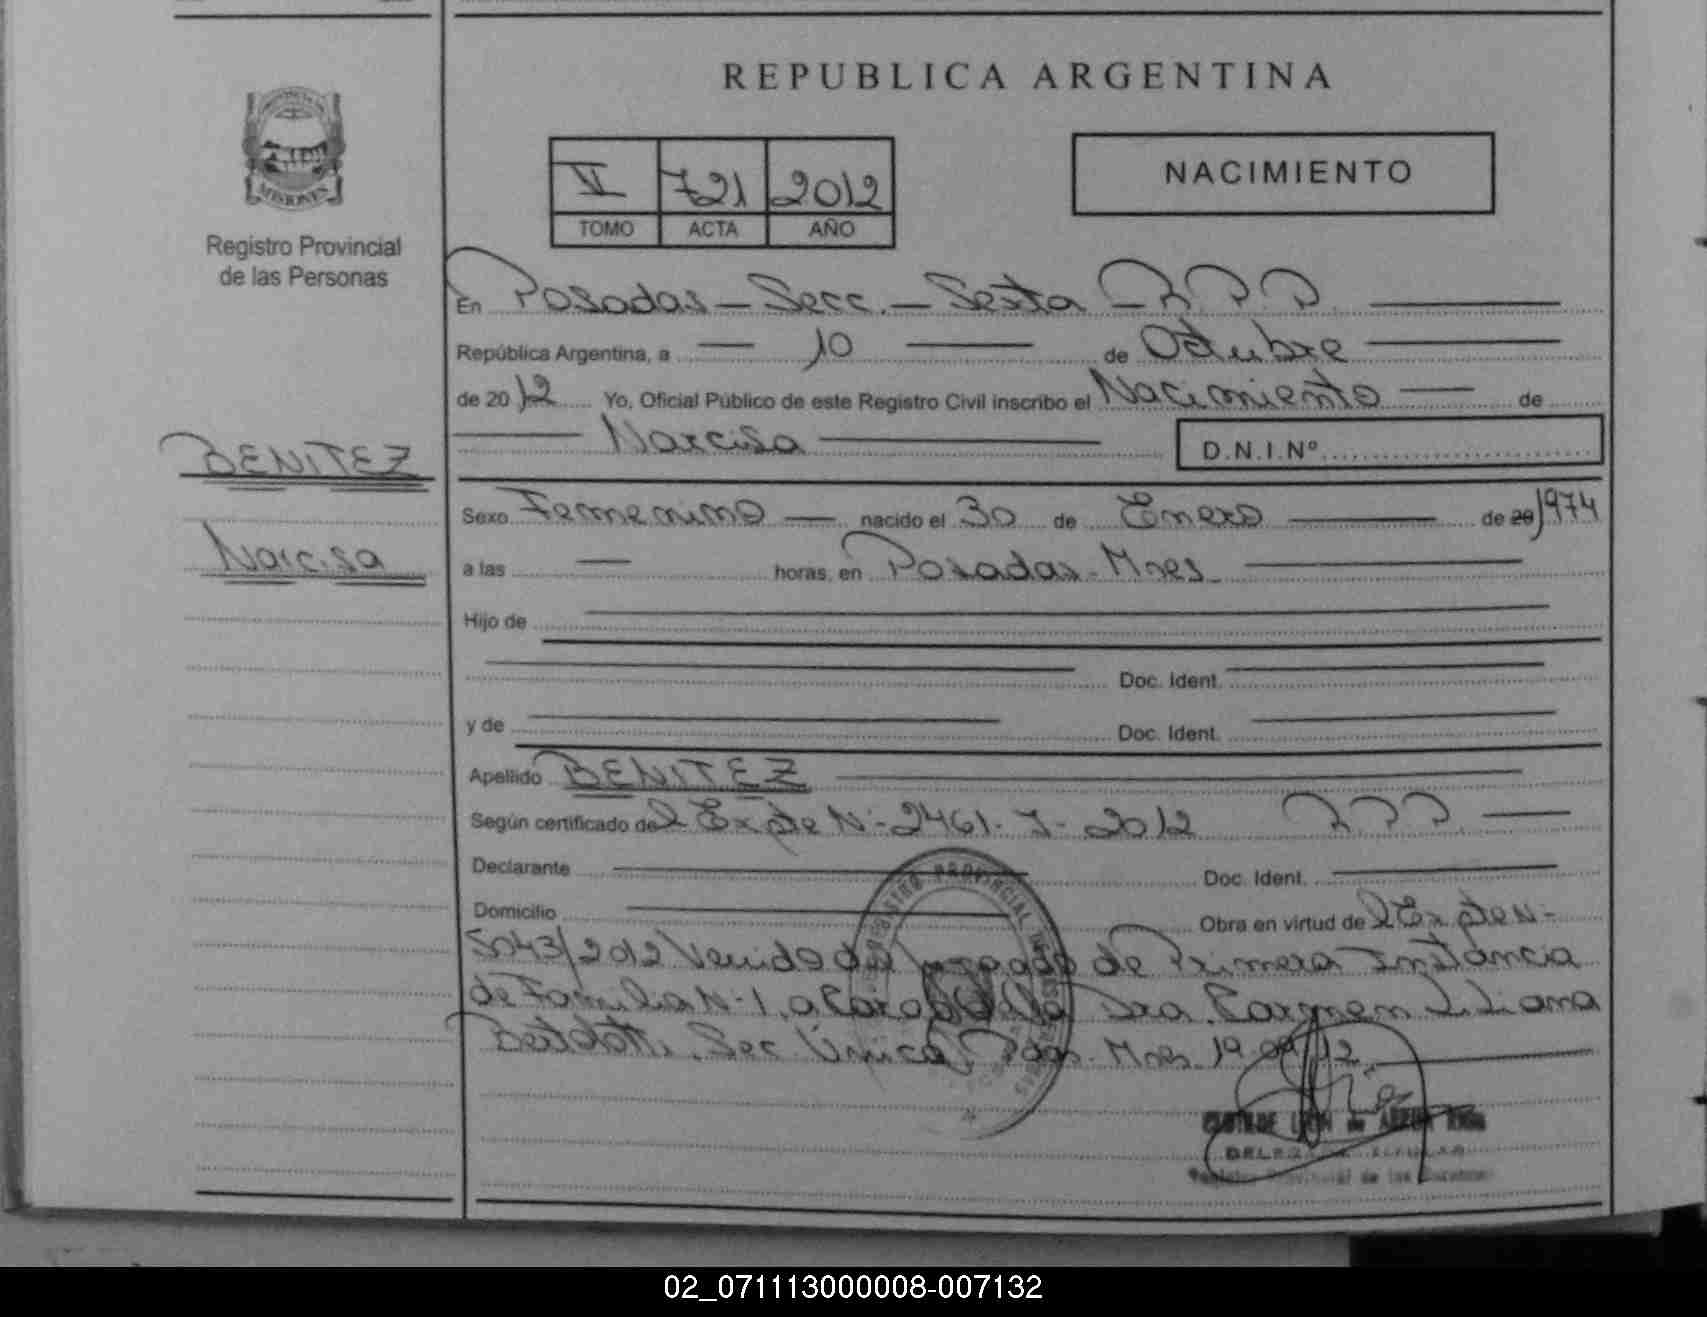 REPUBLICA ARGENTINA
PROVINCIA DE
MISIONES
Registro Provincial
de las Personas
VI 721 2012
TOMO ACTA AÑO
NACIMIENTO
En Posadas - Secc. - Sexta
República Argentina, a 10 de Octubre
de 2012 Yo, Oficial Público de este Registro Civil inscribo el Nacimiento de
Narcisa D.N.I.Nº
BENITEZ
Narcisa
Sexo Femenino nacido el 30 de Enero de 20 1974
a las horas, en Posadas - Mnes
Hijo de
Doc. Ident.
y de Doc. Ident.
Apellido BENITEZ
Según certificado del Expte Nº 2461-J-2012
Declarante Doc. Ident.
Domicilio Obra en virtud del Expte Nº
5043/2012 Venido del Juzgado de Primera Instancia
de Familia Nº 1, a cargo de la Dra. Carmen Liliana
Sec. Única, Pdas. Mnes 19.09.12
REGISTRO PROVINCIAL DE LAS PERSONAS
Registro Provincial de las Personas
02_071113000008-007132